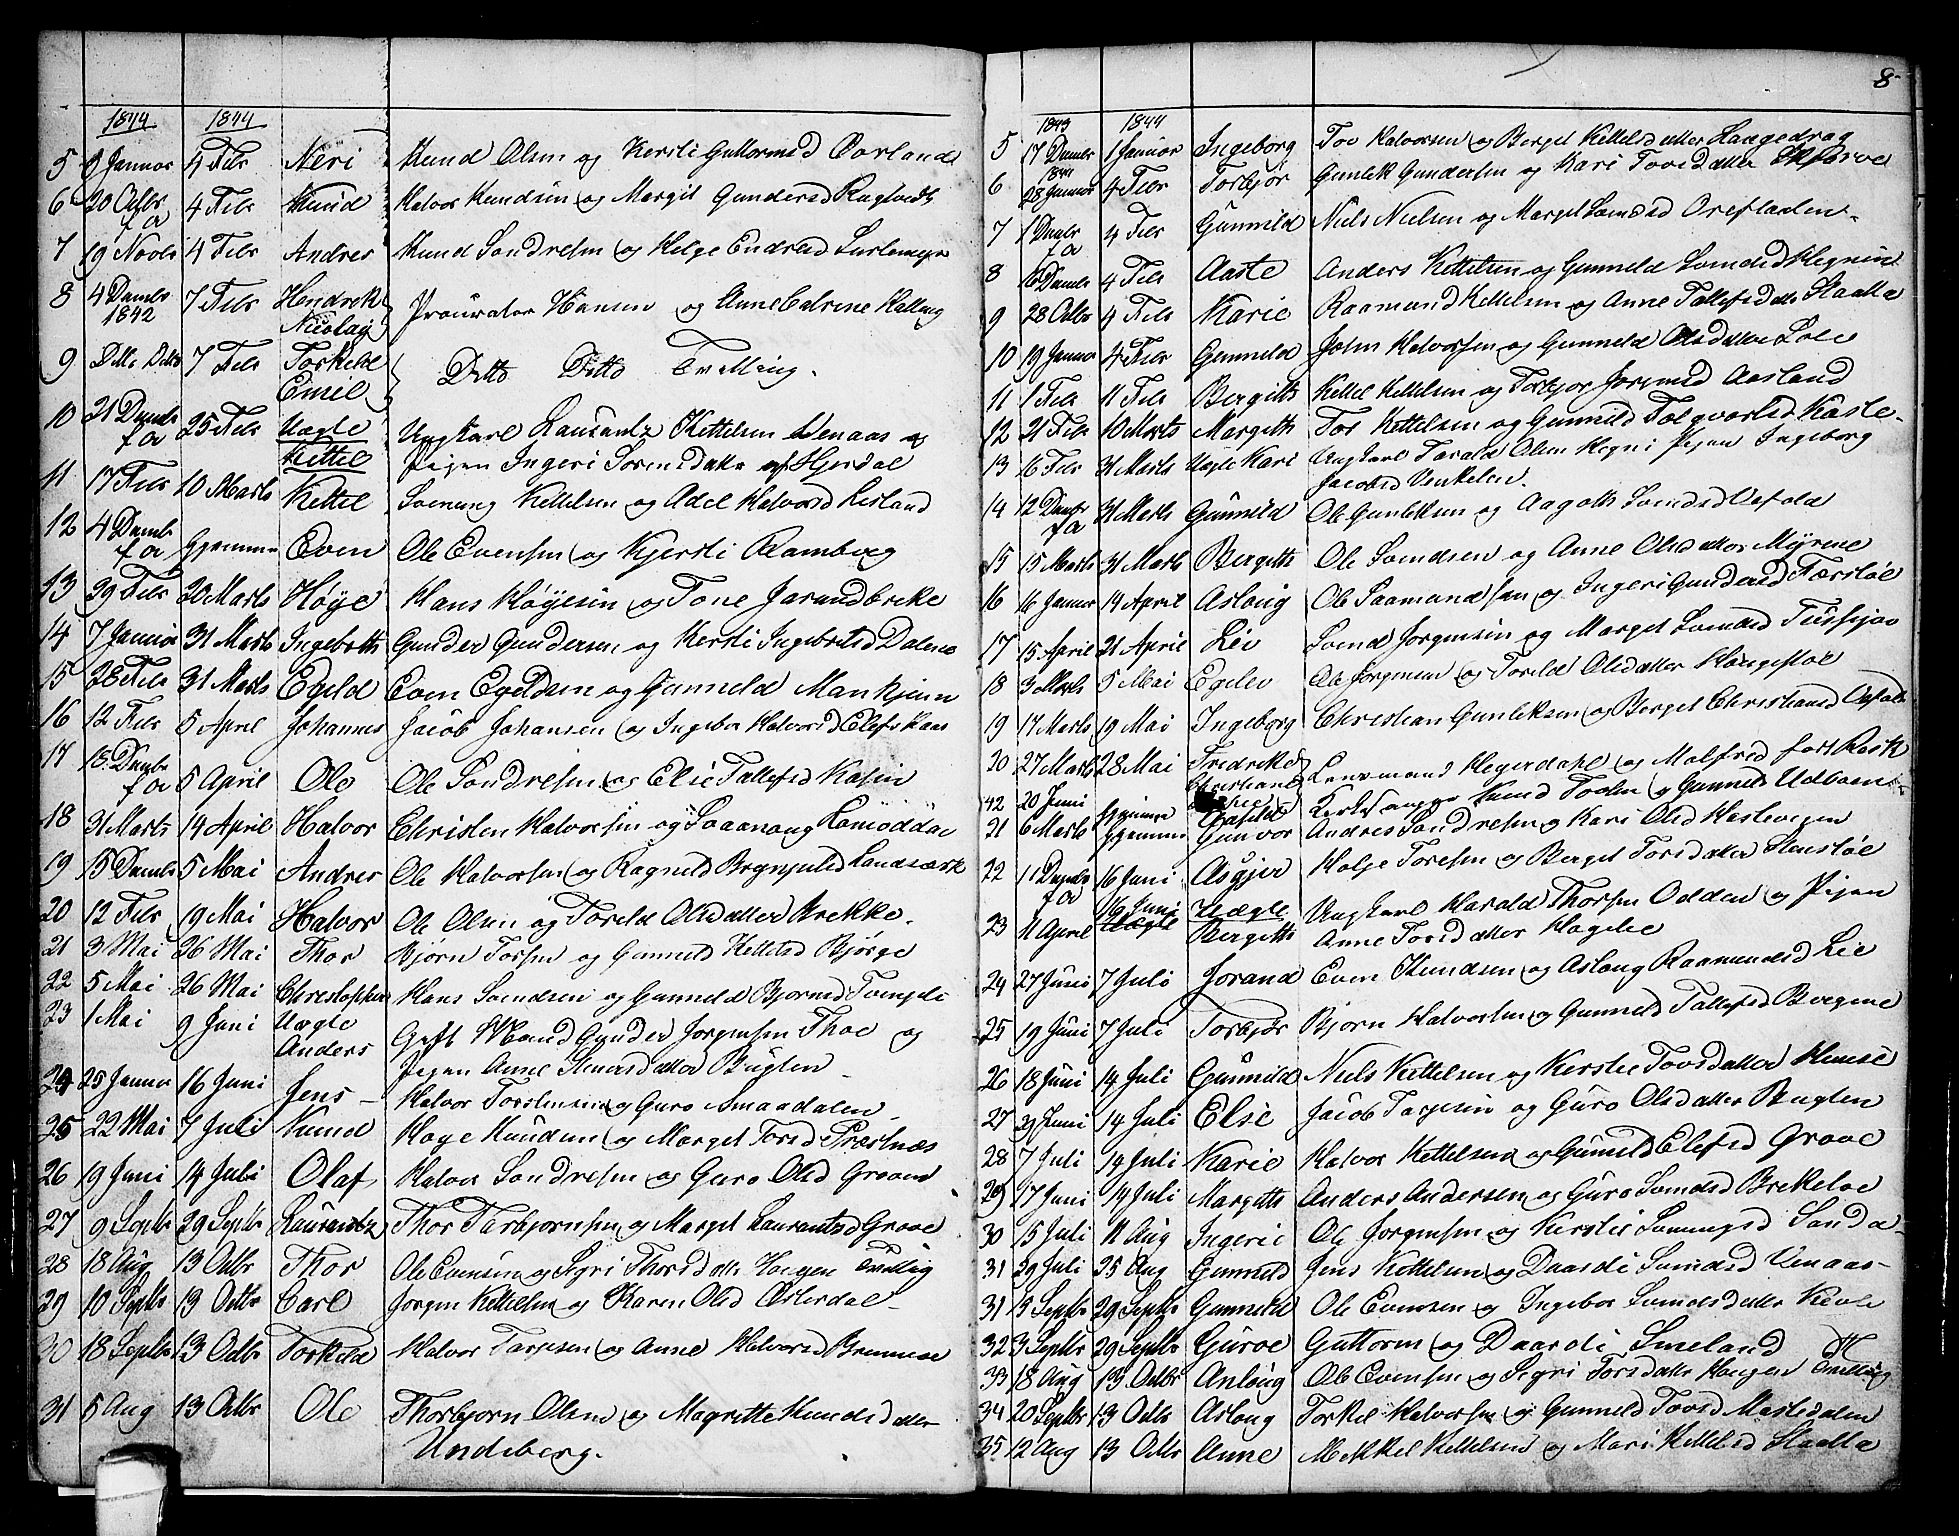 1844 1844
5 9 Januar 4 Febr Neri Knud Olsen og Kersti Guttormsd
6 20 Octbr 4 Febr Knud Halvor Knudsen og Margit Gundersd
f a
7 19 Novbr 4 Febr Andres Knud Sondresen og Helge Endresd
8 4 Decmbr 7 Febr Hendrek Procurator Hansen og Anne Catrine Kallang
1842 Nicolay
9 Ditto Ditto 7 Febr Torkeld Ditto Ditto Tvilling.
Emel
10 21 Decmbr 25 Febr Uægte Ungkarl Laurantz Kettelsen Venaas og
f a Kittel Pigen Ingeri Sorensdatter af Hjerdal
11 17 Febr 10 Marts Kettel Soenung Kettelsen og Adel Halvorsd Lisland
12 4 Decmbr Hjemme Even Ole Evensen og Kjersti Ramberg
f a
13 29 Febr 20 Marts Høye Hans Høyesen og Tone Jarandbreke
14 7 Januar 31 Marts Ingebreth Gunder Gundersen og Kersti Ingebretsd Dalene
15 28 Febr 31 Marts Egeld Even Egeldsen og Gunneld Mankjenn
16 12 Febr 5 April Johannes Jacob Johansen og Ingebor Halvorsd Elefskaas
17 18 Decmbr 5 April Ole Ole Sondresen og Elsie Tallefsd Kasin
f a
18 31 Marts 14 April Halvor Christen Halvorsen og Saanaug
19 15 Decmbr 5 Mai Andres Ole Halvorsen og Ragneld Brynjulsd Landsværk
20 12 Febr 19 Mai Halvor Ole Olsen og Toreld Olsdatter Brekke.
21 3 Mai 26 Mai Thor Bjørn Torsen og Gunneld Kettelsd Bjørge
22 5 Mai 26 Mai Chrestopher Hans Svendsen og Gunneld Bjornsd
23 1 Mai 9 Juni Uægte Gift Mand Gunder Jorgensen Thoe og
Anders Pigen Anne Stenersdatter Bugten
24 25 Januar 16 Juni Jens Halvor Torstensen og Guro Smaadalen
25 22 Mai 7 Juli Knud Hoge Knudsen og Marget Torsd Præstnæs
26 19 Juni 14 Juli Olaf Halvor Sondresen og Guro Olsd Graven
27 9 Septbr 29 Septbr Laurantz Thor Tarbjornsen og Marget Laurantsd Grave
28 18 Aug 13 Octbr Thor Ole Evensen og Segri Thorsdatter Haugen Tvilling
29 10 Septbr 13 Octbr Carl Jorgen Kettelsen og Karen Olsd Østerdal
30 18 Septbr 13 Octbr Torkeld Halvor Tarjesen og Anne Halvorsd
31 5 Aug 13 Octbr Ole Thorbjorn Olsen og Magrette Knudsdatter
Undeberg.
8
1843 1844
5 17 Decmbr 1 Januar Ingeborg Tov Halvorsen og Berget Kittelsdatter Haugedrag
1844
6 28 Januar 4 Febr Torbjør Gunlek Gundersen og Kari Tovsdatter
7 1 Decmbr 4 Febr Gunnild Niels Nielsen og Marget Svendsd Orefladen
f a
8 16 Decmbr 4 Febr Aaste Anders Kettelsen og Gunneld Svendsd Hegnin
9 28 Octbr 4 Febr Karie Raamund Kettelsen og Anne Tallefsdatter Staalla
10 19 Januar 4 Febr Gunneld John Halvorsen og Gunneld Olsdatter
11 1 Febr 11 Febr Bergith Kettel Kettelsen og Torbjor Jorgensd Aasland
12 21 Febr 10 Marts Margith Tov Kettelsen og Gunneld Kaste
13 16 Febr 31 Marts Uægte Kari Ungkarl Tarald Olsen Hegni Pigen Ingeborg
Jacobsd
14 12 Decmbr 31 Marts Gunnild Ole Gunleksen og Aagoth Svendsd
f a
15 15 Marts 31 Marts Bergith Ole Svendsen og Anne Olsdatter Myrene
16 16 Januar 14 April Aslaug Ole Saamundsen og Ingeri Gundersd
17 15 April 21 April Liv Svend Jorgensen og Marget Svendsd
18 3 Marts 5 Mai Egelev Ole Jorgensen og Toreld Olsdatter Haugestøl
19 17 Marts 19 Mai Ingeborg Christian Gunleksen og Berget Christiansd
20 27 Marts 28 Mai Fredrikke Lensmand Hegerdahl og Malfred
42 20 Juni Hjemme Kirkesanger Knud Todn og Gunneld
21 6 Marts Hjemme Gunvor Andres Sondresen og Kari Olsd
22 11 Decmbr 16 Juni Asgjer Holje Toresen og Berget Torsdatter
f a
23 11 April 16 Juni Uægte Ungkarl Harald Thorsen Odden og Pigen
Bergith Anne Tovsdatter Hagelie
24 27 Juni 7 Juli Jorand Even Knudsen og Aslaug Raamundsd Lie
25 19 Juni 7 Juli Torbjør Bjorn Halvorsen og Gunneld Tallefsd
26 18 Juni 14 Juli Gunnild Niels Kettelsen og Kerstie Tovsdatter
27 23 Juni 14 Juli Else Jacob Tarjesen og Guro Olsdatter Bugten
28 7 Juli 14 Juli Karie Halvor Kettelsen og Gunneld Elefsd Grave
29 17 Juni 14 Juli Margith Anders Andersen og Guro Svendsd
30 15 Juli 11 Aug Ingerie Ole Jorgensen og Kerstie
31 29 Juli 25 Aug Gunneld Jens Kettelsen og Daardi Svendsd Venaas
31 13 Septbr 29 Septbr Gunneld Ole Evensen og Ingebor Svendsdatter
32 3 Septbr 29 Septbr Guroe Guttorm og Daardi Smeland
33 18 Aug 13 Octbr Anlaug Ole Evensen og Segri Torsdatter Haugen Tvilling
34 20 Septbr 13 Octbr Aslaug Torkel Halvorsen og Gunneld Tovsd
35 12 Aug 13 Octbr Anne Mekkel Kettelsen og Mari Kettelsd Staalla